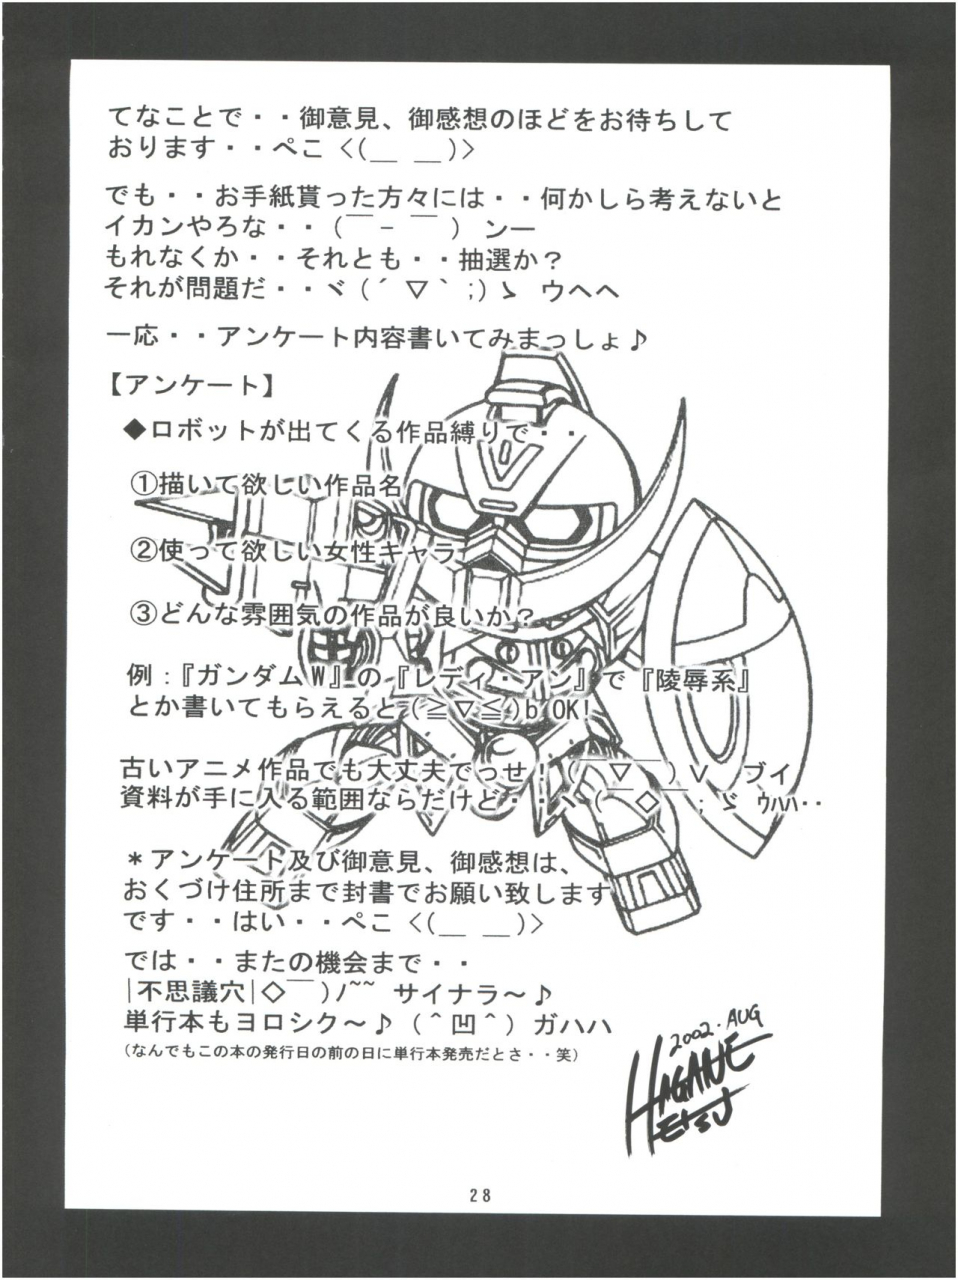 てなことで・・御意見、御感想のほどをお待ちして
おります・・ぺこ <(__ __)>
でも・・お手紙貰った方々には・・何かしら考えないと
イカンやろな・・(￣－￣) ンー
もれなくか・・それとも・・抽選か？
それが問題だ・・ヾ(´▽｀;)ゝ ウヘヘ
一応・・アンケート内容書いてみまっしょ♪
【アンケート】
◆ロボットが出てくる作品縛りで・・
①描いて欲しい作品名
②使って欲しい女性キャラ
③どんな雰囲気の作品が良いか？
例：『ガンダムW』の『レディ・アン』で『陵辱系』
とか書いてもらえると(≧▽≦)b OK!
古いアニメ作品でも大丈夫でっせ！(￣▽￣)Ｖ ブイ
資料が手に入る範囲ならだけど・・ヽ(￣◇￣;ゞ ｳﾊﾊ・・
＊アンケート及び御意見、御感想は、
おくづけ住所まで封書でお願い致します
です・・はい・・ぺこ <(__ __)>
では・・またの機会まで・・
|不思議穴|◇￣)ﾉ~~ サイナラ～♪
単行本もヨロシク～♪(＾凹＾) ガハハ
(なんでもこの本の発行日の前の日に単行本発売だとさ・・笑)
2002.AUG
HAGANE
TETSU
28